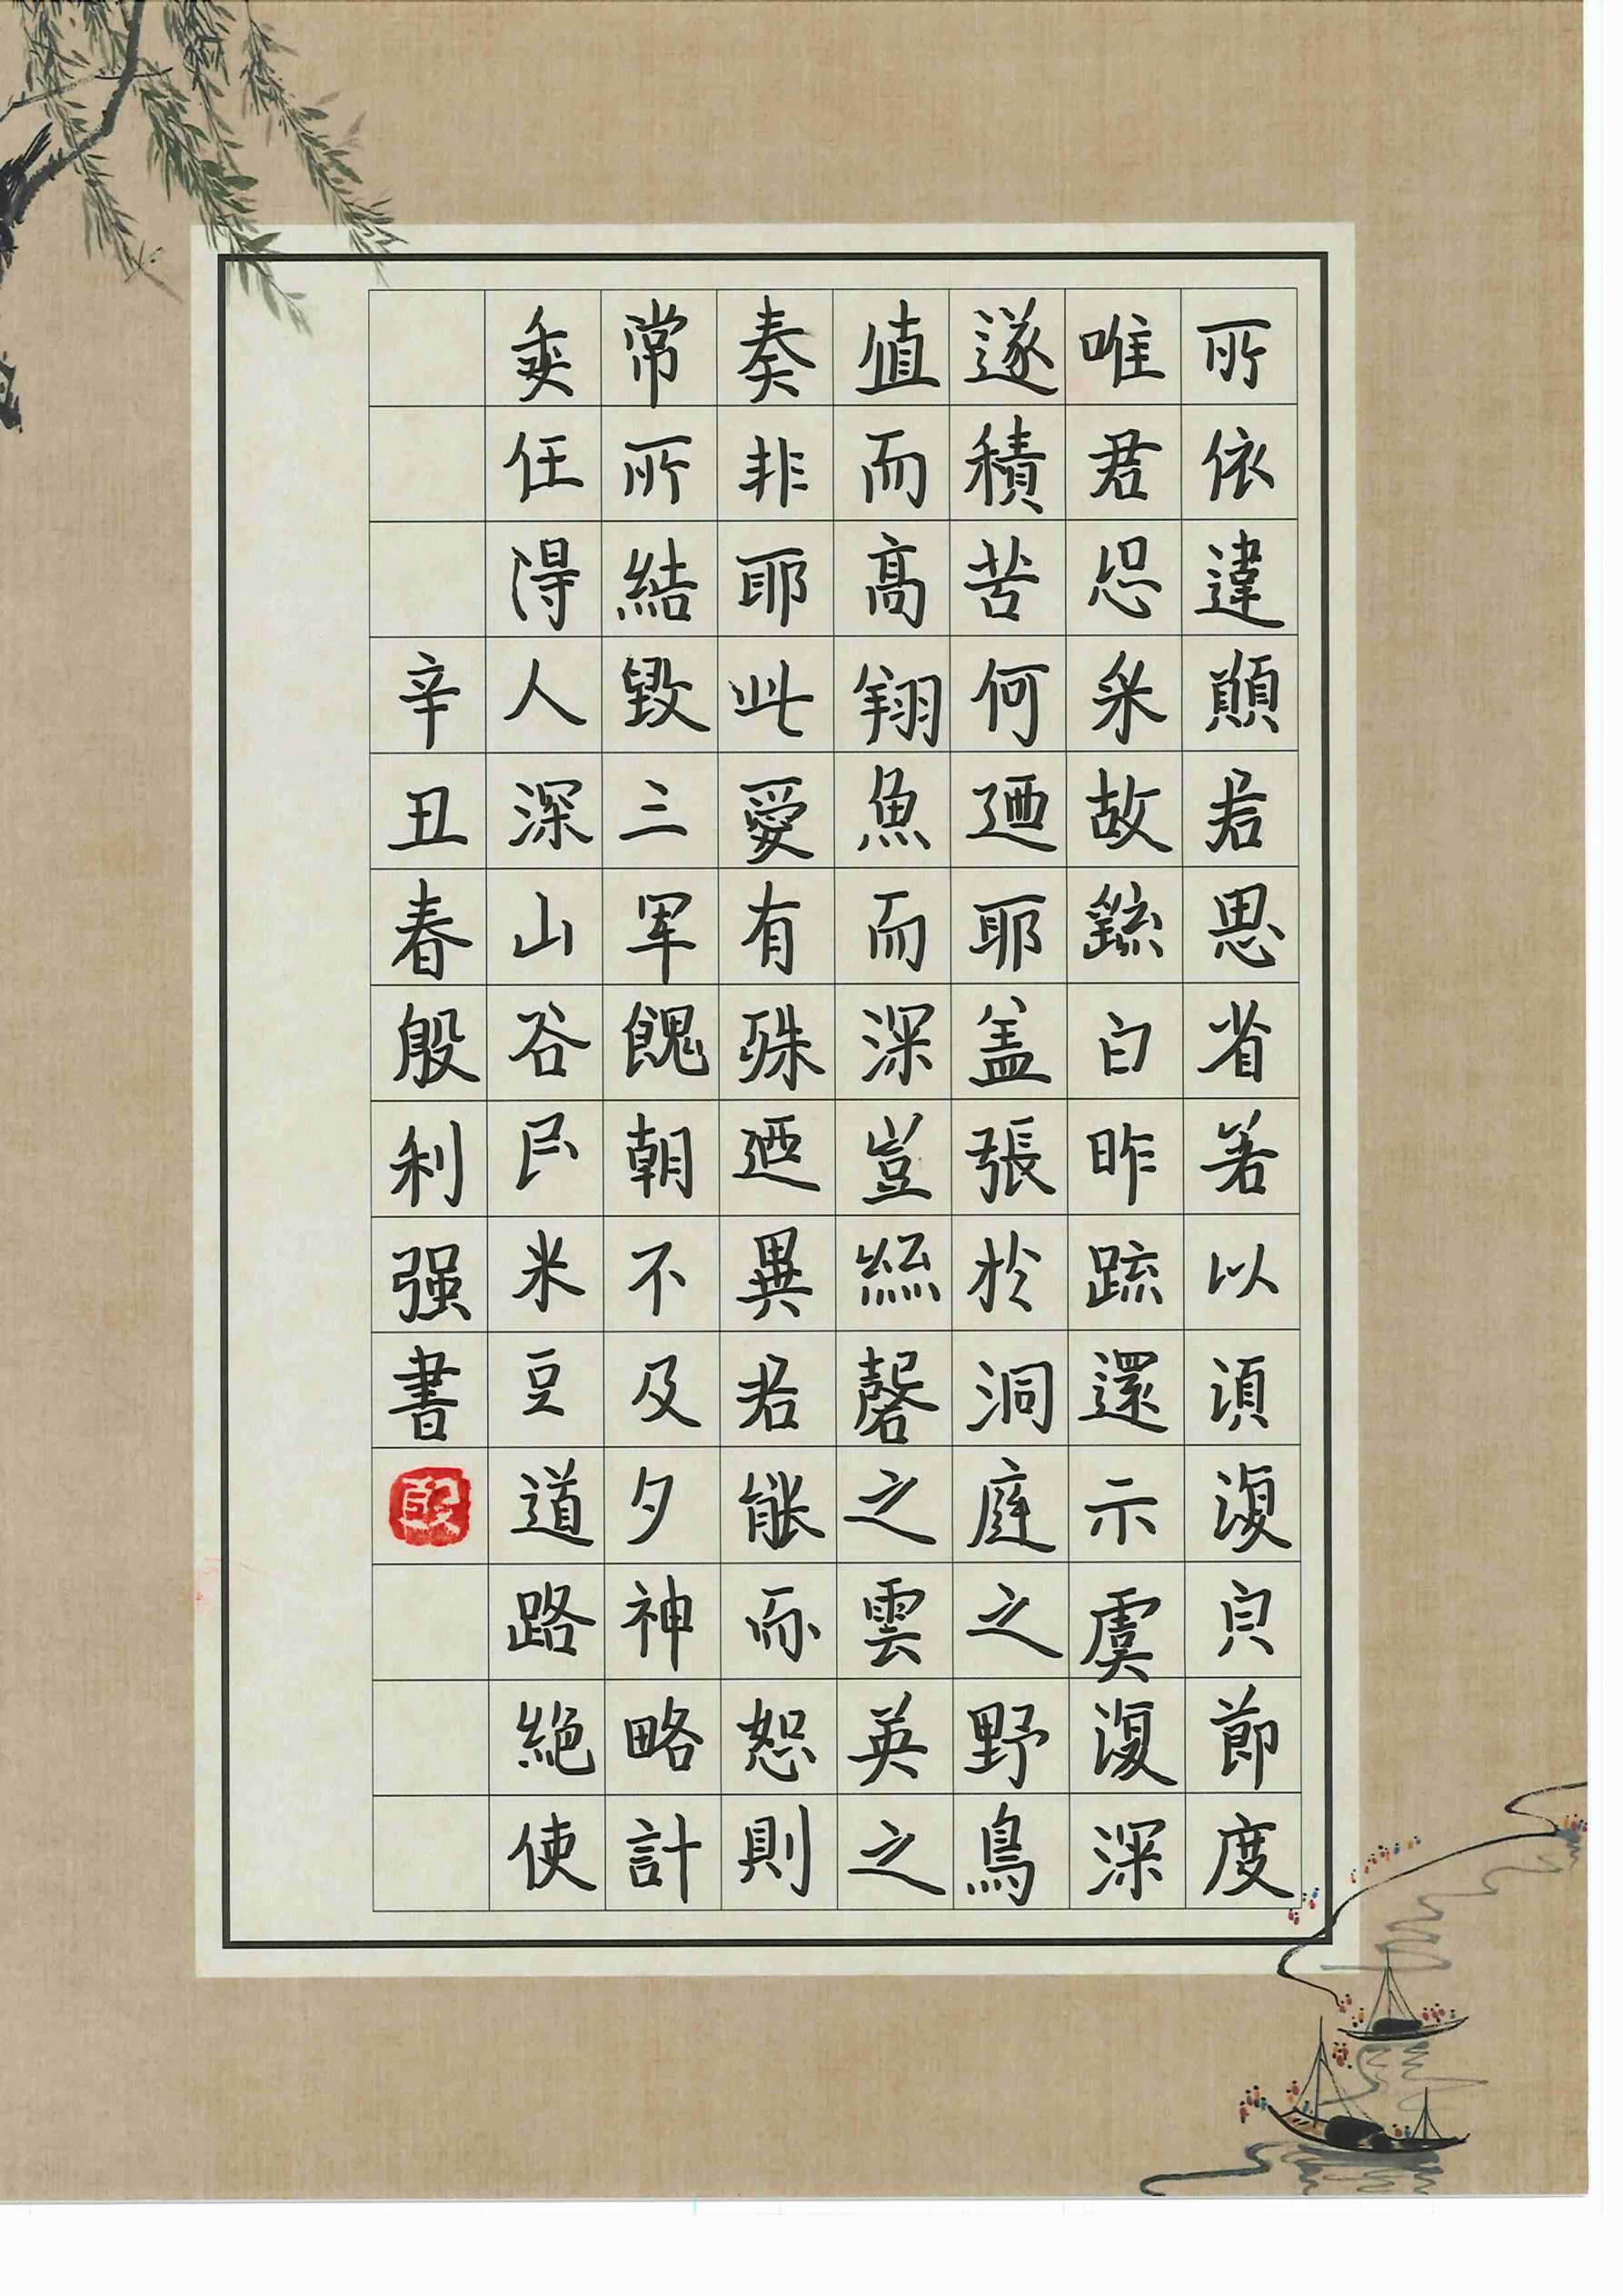 所依違願君思省若以須復具節度
唯君恕采故繇白昨疏還示虞復深
遂積苦何廼耶盖張於洞庭之野鳥
值而高翔魚而深豈絲磬之雲英之
奏非耶此愛有殊廼異君能而恕則
常所結毀三軍餽朝不及夕神略計
委任得人深山谷民米豆道路絕使
辛丑春殷利强書
殷